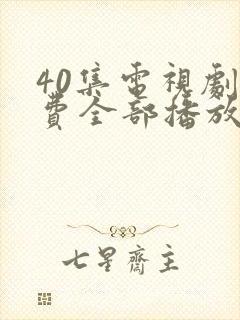 40集電視劇
費全部播放
七星齋主